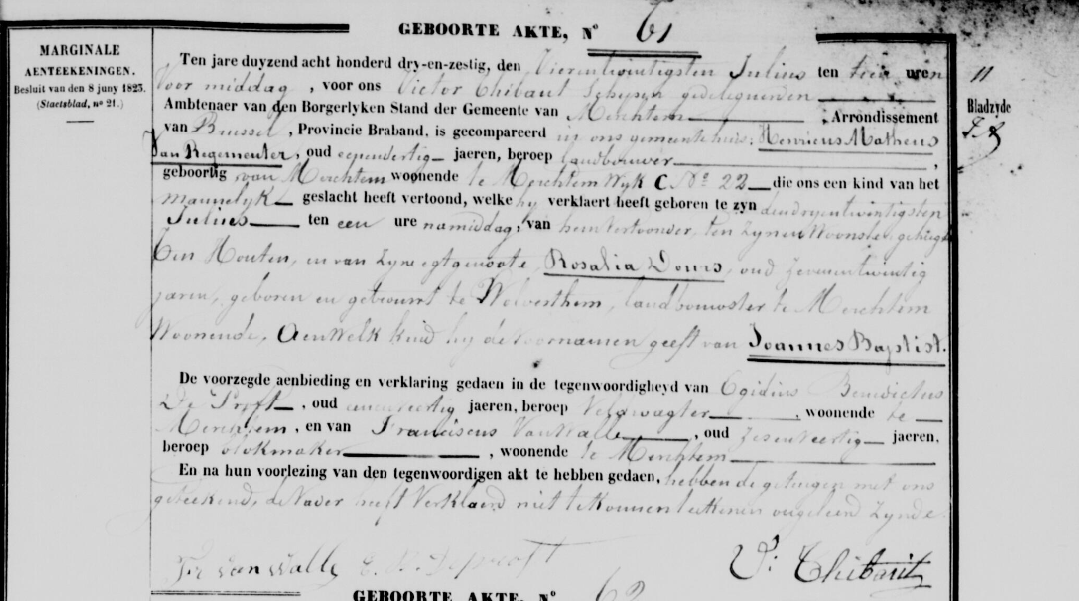 GEBOORTE AKTE, N° 61
MARGINALE
AENTEEKENINGEN.
Besluit van den 8 juny 1823.
(Staetsblad, n° 21.)
11
Bladzyde
Ten jare duyzend acht honderd dry-en-zestig, den Vierentwintigsten Julius ten tien uren
Voor middag , voor ons Victor Thibaut Schepen gedelegueerden
Ambtenaer van den Borgerlyken Stand der Gemeente van Merchtem , Arrondissement
van Brussel , Provincie Braband, is gecompareerd in ons gemeentehuis: Henricus Matheus
Van Regemeuter, oud eenendertig jaeren, beroep landbouwer ,
geboortig van Merchtem woonende te Merchtem Wyk C. N° 22 die ons een kind van het
mannelyk geslacht heeft vertoond, welke hy verklaert heeft geboren te zyn den dryentwintigsten
Julius ten een ure namiddag, van hem Vertoonder, ten Zynen Woonste, gehugt
Ten Houten, en van Zyne egtgenoote, Rosalia Dons, oud Zevenentwintig
jaren, geboren en getrouwt te Wolverthem, landbouwster te Merchtem
Woonende. Aen Welk kind hy de voornamen geeft van Joannes Baptist.
De voorzegde aenbieding en verklaring gedaen in de tegenwoordigheyd van Egidius Benedictus
De Proft , oud eenenveertig jaeren, beroep Veldwagter , woonende te
Merchtem , en van Franciscus VanWalle , oud Zesenveertig jaeren,
beroep blokmaker , woonende te Merchtem
En na hun voorlezing van den tegenwoordigen akt te hebben gedaen, hebben de getuigen met ons
geteekend, de Vader heeft Verklaerd niet te Konnen teekenen ongeleerd Zynde.
Fr Van Walle E. B. Deproft V: Thibaut
GEBOORTE AKTE, N° 62